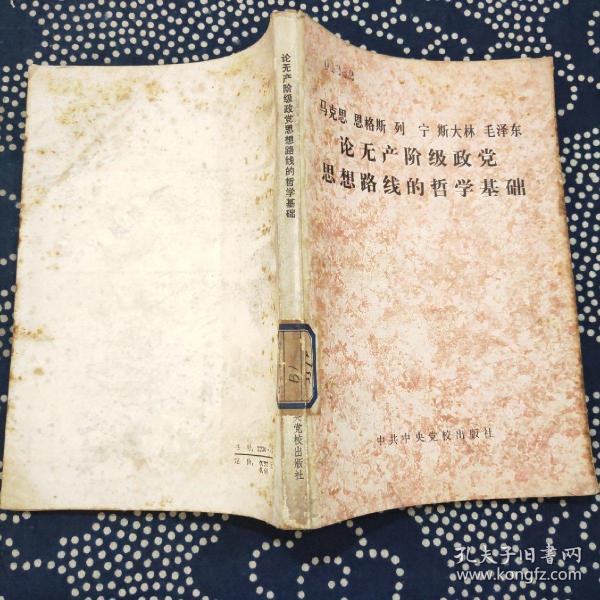 马克思 恩格斯 列 宁 斯大林 毛泽东
论无产阶级政党
思想路线的哲学基础
中共中央党校出版社
论无产阶级政党思想路线的哲学基础
B1
央党校出版社
孔夫子旧书网
www.kongfz.com